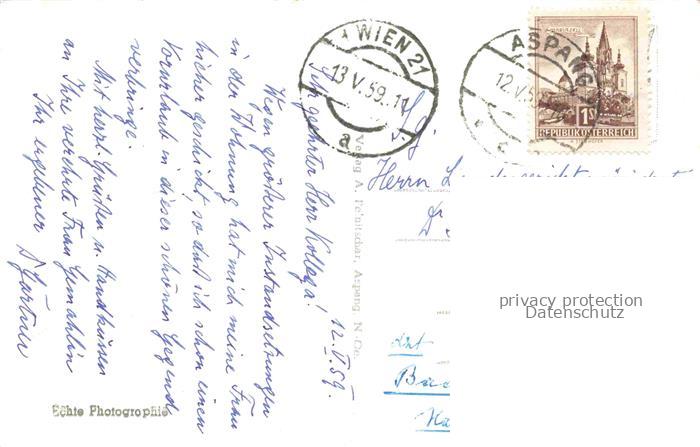 12. V. 59.
Sehr geehrter Herr Kollega!
Wegen größerer Instandsetzungen
in der Wohnung hat mich meine Frau
hieher geschickt, so daß ich schon einen
Vorurlaub in dieser schönen Gegend
verbringe.
Mit herzl. Grüßen u. Handküssen
an Ihre verehrte Frau Gemahlin
Ihr ergebener
Gärtner
Echte Photographie
Verlag A. Aspang, N-Oe.
WIEN 21
13. V. 59.
a
ASPANG
12. V. 5
MARIAZELL
1S
REPUBLIK ÖSTERREICH
Herrn
Dr
privacy protection
Datenschutz